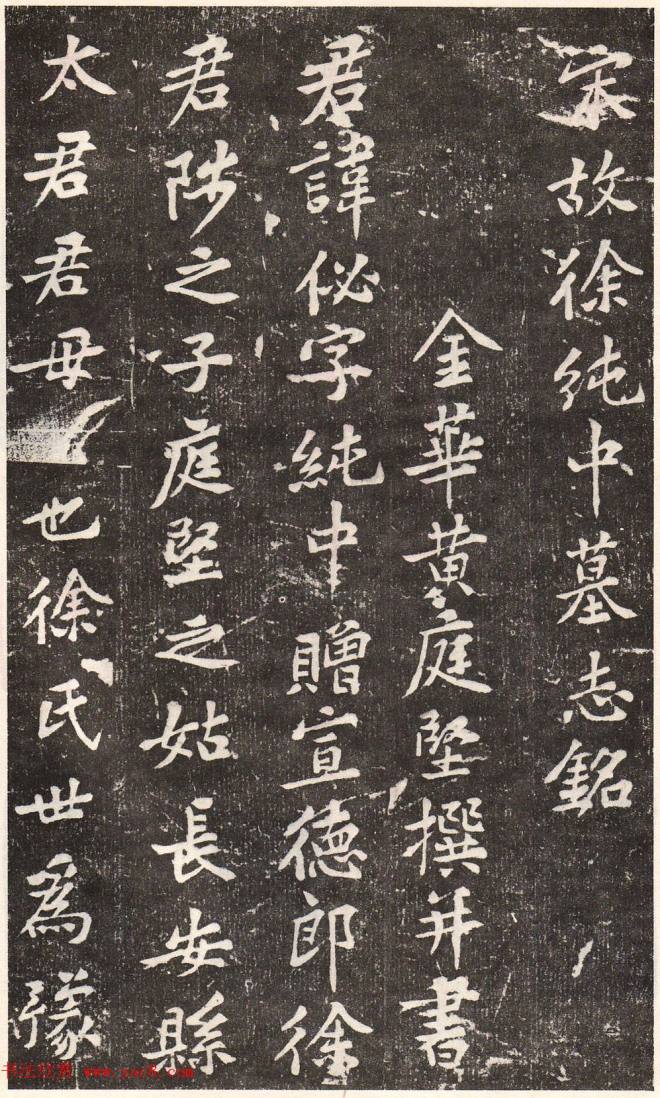 宋故徐純中墓志銘
金華黃庭堅撰并書
君諱佖字純中贈宣德郎徐
君陟之子庭堅之姑長安縣
太君君母也徐氏世為豫
书法欣赏